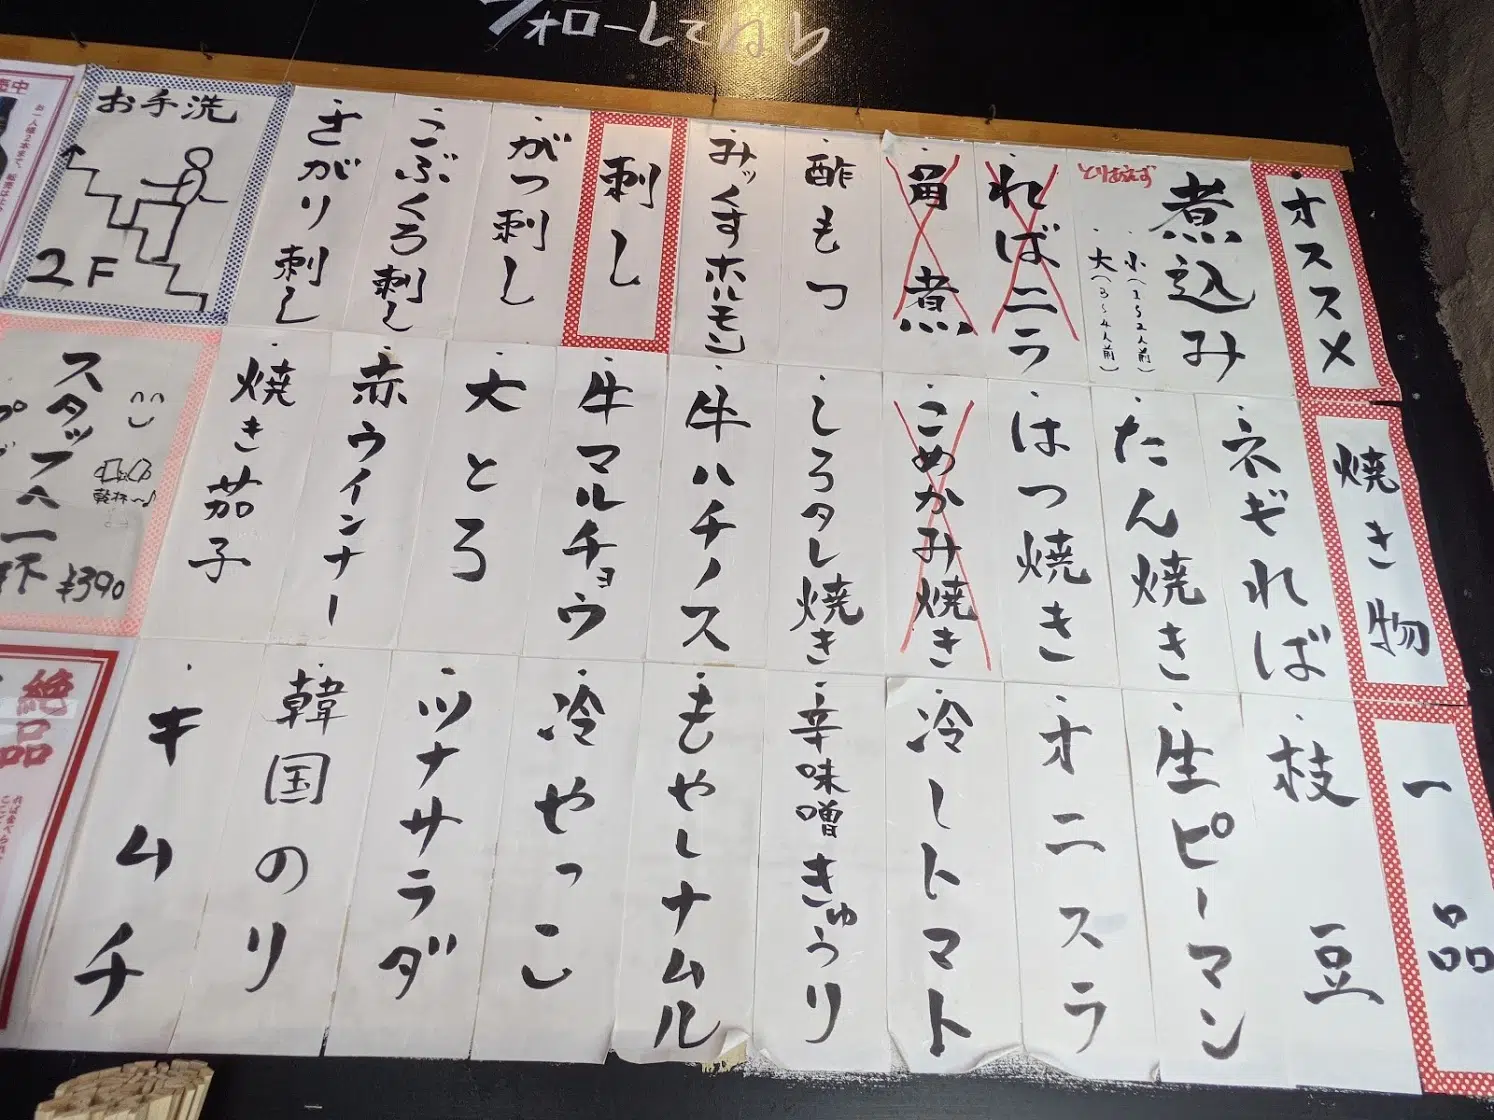 フォローしてね
オススメ
とりあえず
煮込み
・小(1〜2人前)
・大(3〜4人前)
・ればニラ
・角煮
・酢もつ
・みっくすホルモン
刺し
・がつ刺し
・こぶくろ刺し
・さがり刺し
お手洗
2F
焼き物
・ネギれば
・たん焼き
・はつ焼き
・こめかみ焼き
・しろタレ焼き
・牛ハチノス
・牛マルチョウ
・大とろ
・赤ウインナー
・焼き茄子
スタッフへ
乾杯〜♪
¥390
一品
・枝豆
・生ピーマン
・オニスラ
・冷しトマト
・辛味噌きゅうり
・もやしナムル
・冷やっこ
・ツナサラダ
・韓国のり
・キムチ
絶品